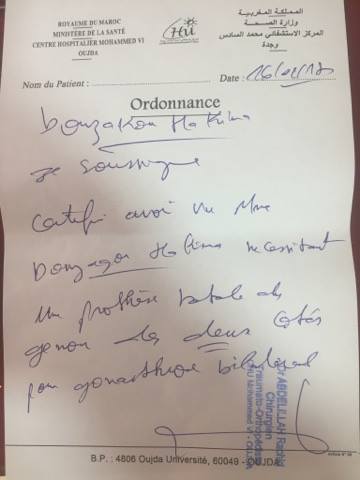 ROYAUME DU MAROC
MINISTÈRE DE LA SANTÉ
CENTRE HOSPITALIER MOHAMMED VI
OUJDA
المملكة المغربية
وزارة الصحة
المركز الاستشفائي محمد السادس
وجدة
Nom du Patient : Date :
Ordonnance
Bouzakou Hakima
Je soussigné
certifie avoir vu Mme
Hakima nécessitant
une prothèse totale de
genou des deux cotés
pour gonarthrose bilatéral
Dr ABDELILLAH Rachid
Chirurgien
Traumato-Orthopédiste
CHU Mohammed VI - OUJDA
B.P. : 4806 Oujda Université, 60049 - OUJDA